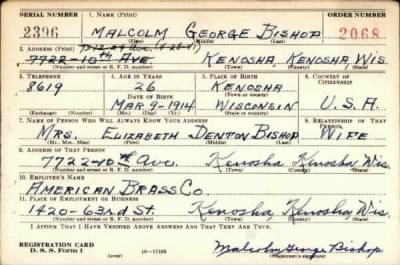 SERIAL NUMBER 1. NAME (Print) ORDER NUMBER
2396 MALCOLM GEORGE BISHOP 2068
(First) (Middle) (Last)
2. ADDRESS (Print)
7722-10th AVE. KENOSHA, KENOSHA, WIS.
(Number and street or R. F. D. number) (Town) (County) (State)
3. TELEPHONE 4. AGE IN YEARS 5. PLACE OF BIRTH 6. COUNTRY OF CITIZENSHIP
8619 26 KENOSHA
DATE OF BIRTH (Town or county)
MAR-9-1914 WISCONSIN U.S.A.
(Exchange) (Number) (Mo.) (Day) (Yr.) (State or country)
7. NAME OF PERSON WHO WILL ALWAYS KNOW YOUR ADDRESS 8. RELATIONSHIP OF THAT PERSON
MRS. ELIZABETH DENTON BISHOP WIFE
(Mr., Mrs., Miss) (First) (Middle) (Last)
9. ADDRESS OF THAT PERSON
7722-10th Ave. Kenosha Kenosha, Wis.
(Number and street or R. F. D. number) (Town) (County) (State)
10. EMPLOYER'S NAME
AMERICAN BRASS CO.
11. PLACE OF EMPLOYMENT OR BUSINESS
1420-63rd St. Kenosha, Kenosha, Wis.
(Number and street or R. F. D. number) (Town) (County) (State)
I AFFIRM THAT I HAVE VERIFIED ABOVE ANSWERS AND THAT THEY ARE TRUE.
REGISTRATION CARD
D. S. S. Form 1 (over) 16-17105 Malcolm George Bishop
(Registrant's signature)